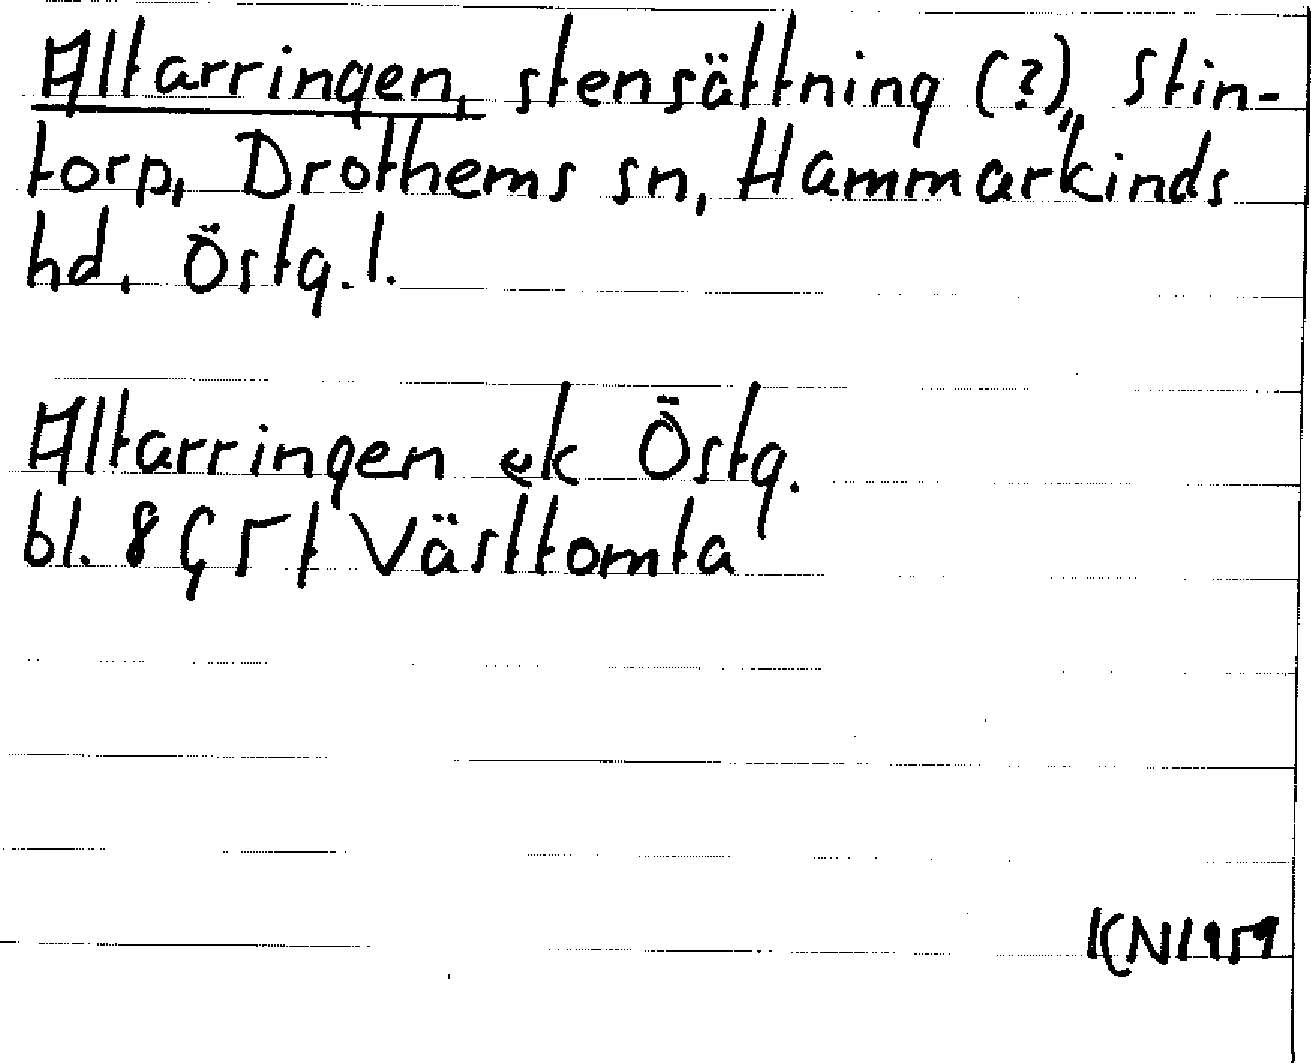 Altarringen, stensättning (?), Stin-
torp, Drothems sn, Hammarkinds
hd, Östg. l.
Altarringen ek Östg.
bl. 8 G 5 f Västtomta
KN 1959